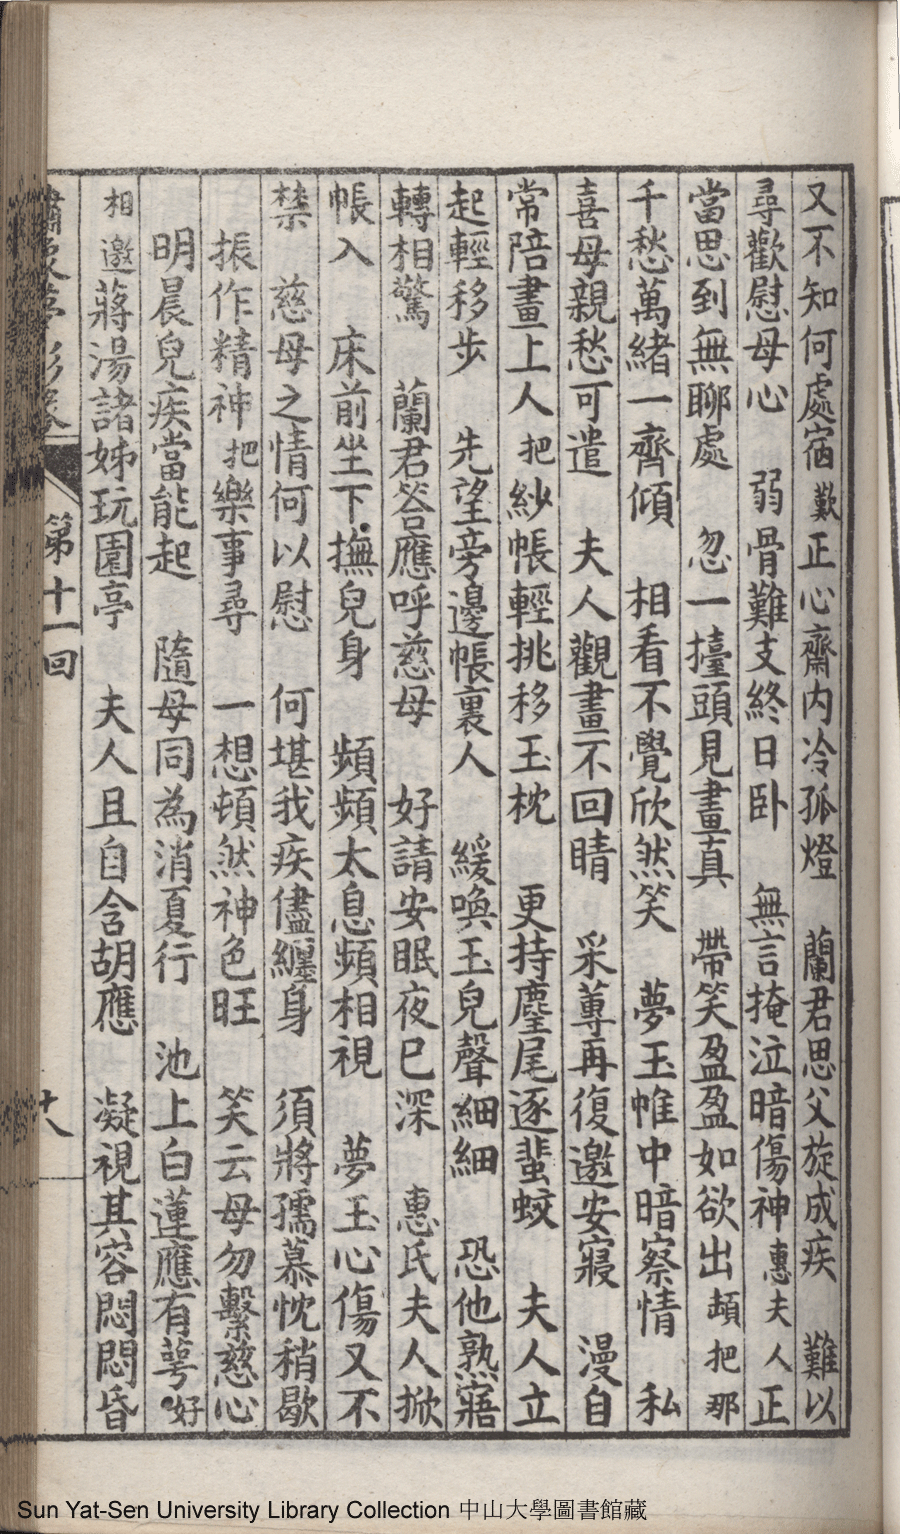 又不知何處宿歎正心齋内冷孤燈　蘭君思父旋成疾　難以
尋歡慰母心　弱骨難支終日卧　無言掩泣暗傷神惠夫人正
當思到無聊處　忽一擡頭見畫真　帶笑盈盈如欲出　頓把那
千愁萬緒一齊傾　相看不覺欣然笑　夢玉帷中暗察情　私
喜母親愁可遣　夫人觀畫不回睛　采蓴再復邀安寢　漫自
常陪畫上人把紗帳輕挑移玉枕　更持麈尾逐蜚蚊　夫人立
起輕移步　先望旁邊帳裏人　緩喚玉兒聲細細　恐他熟寤
轉相驚　蘭君答應呼慈母　好請安眠夜已深　惠氏夫人掀
帳入　床前坐下撫兒身　頻頻太息頻相視　夢玉心傷又不
禁　慈母之情何以慰　何堪我疾儘纏身　須將孺慕忱稍歇
振作精神把樂事尋　一想頓然神色旺　笑云母勿繫慈心
明晨兒疾當能起　隨母同為消夏行　池上白蓮應有萼好
相邀蔣湯諸姊玩園亭　夫人且自含胡應　凝視其容悶悶昏
第十一回
十八
Sun Yat-Sen University Library Collection 中山大學圖書館藏